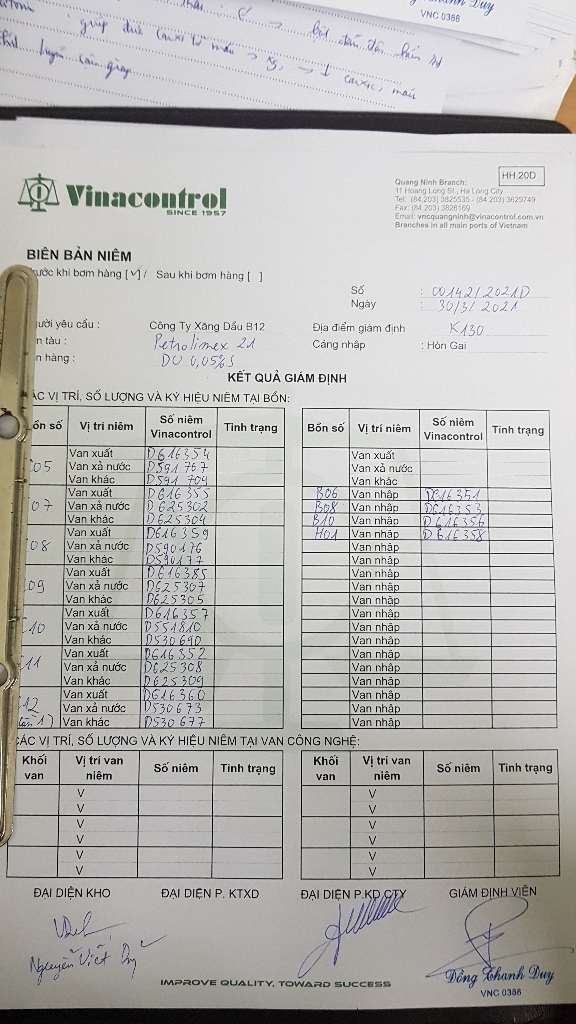 Duy
VNC 0386
HH.20D
Vinacontrol
SINCE 1957
Quang Ninh Branch:
11 Hoang Long St., Ha Long City
Tel: (84.203) 3825535 - (84.203) 3629749
Fax: (84.203) 3826169
Email: vncquangninh@vinacontrol.com.vn
Branches in all main ports of Vietnam
BIÊN BẢN NIÊM
rước khi bơm hàng [V] / Sau khi bơm hàng [ ]
Số : 00142/2021D
Ngày : 30/3/2021
ười yêu cầu : Công Ty Xăng Dầu B12 Địa điểm giám định K130
n tàu : Petrolimex 21 Cảng nhập : Hòn Gai
n hàng : DO 0,05%S
KẾT QUẢ GIÁM ĐỊNH
ÁC VỊ TRÍ, SỐ LƯỢNG VÀ KÝ HIỆU NIÊM TẠI BỒN:
ồn số Vị trí niêm Số niêm Vinacontrol Tình trạng Bồn số Vị trí niêm Số niêm Vinacontrol Tình trạng
Van xuất D616354 Van xuất
05 Van xả nước D591767 Van xả nước
Van khác D591704 Van khác
Van xuất D616355 B06 Van nhập D616351
07 Van xả nước D625302 B08 Van nhập D616353
Van khác D625304 B10 Van nhập D616356
Van xuất D616359 H01 Van nhập D616358
08 Van xả nước D590176 Van nhập
Van khác D590177 Van nhập
Van xuất D616385 Van nhập
09 Van xả nước D625307 Van nhập
Van khác D625305 Van nhập
Van xuất D616357 Van nhập
10 Van xả nước D551810 Van nhập
Van khác D530690 Van nhập
Van xuất D616352 Van nhập
11 Van xả nước D625308 Van nhập
Van khác D625309 Van nhập
Van xuất D616360 Van nhập
12 Van xả nước D530673 Van nhập
1) Van khác D530677 Van nhập
ÁC VỊ TRÍ, SỐ LƯỢNG VÀ KÝ HIỆU NIÊM TẠI VAN CÔNG NGHỆ:
Khối van Vị trí van niêm Số niêm Tình trạng Khối van Vị trí van niêm Số niêm Tình trạng
V V
V V
V V
V V
V V
V V
ĐẠI DIỆN KHO ĐẠI DIỆN P. KTXD ĐẠI DIỆN P.KD CTY GIÁM ĐỊNH VIÊN
Nguyễn Viết
Đồng Thanh Duy
VNC 0386
IMPROVE QUALITY, TOWARD SUCCESS